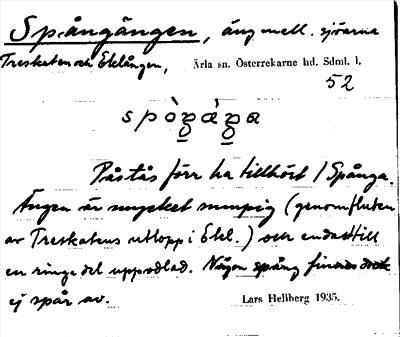 Spångängen, äng mell. sjöarna
Treskaten och Eklången, Ärla sn. Österrekarne hd. Sdml. l.
52
Påstås förr ha tillhört / Spånga.
Ängen är mycket sumpig (genomfluten
av Treskatens utlopp i Ekl.) och endast till
en ringa del uppodlad. Någon spång finnes dock
ej spår av.
Lars Hellberg 1935.